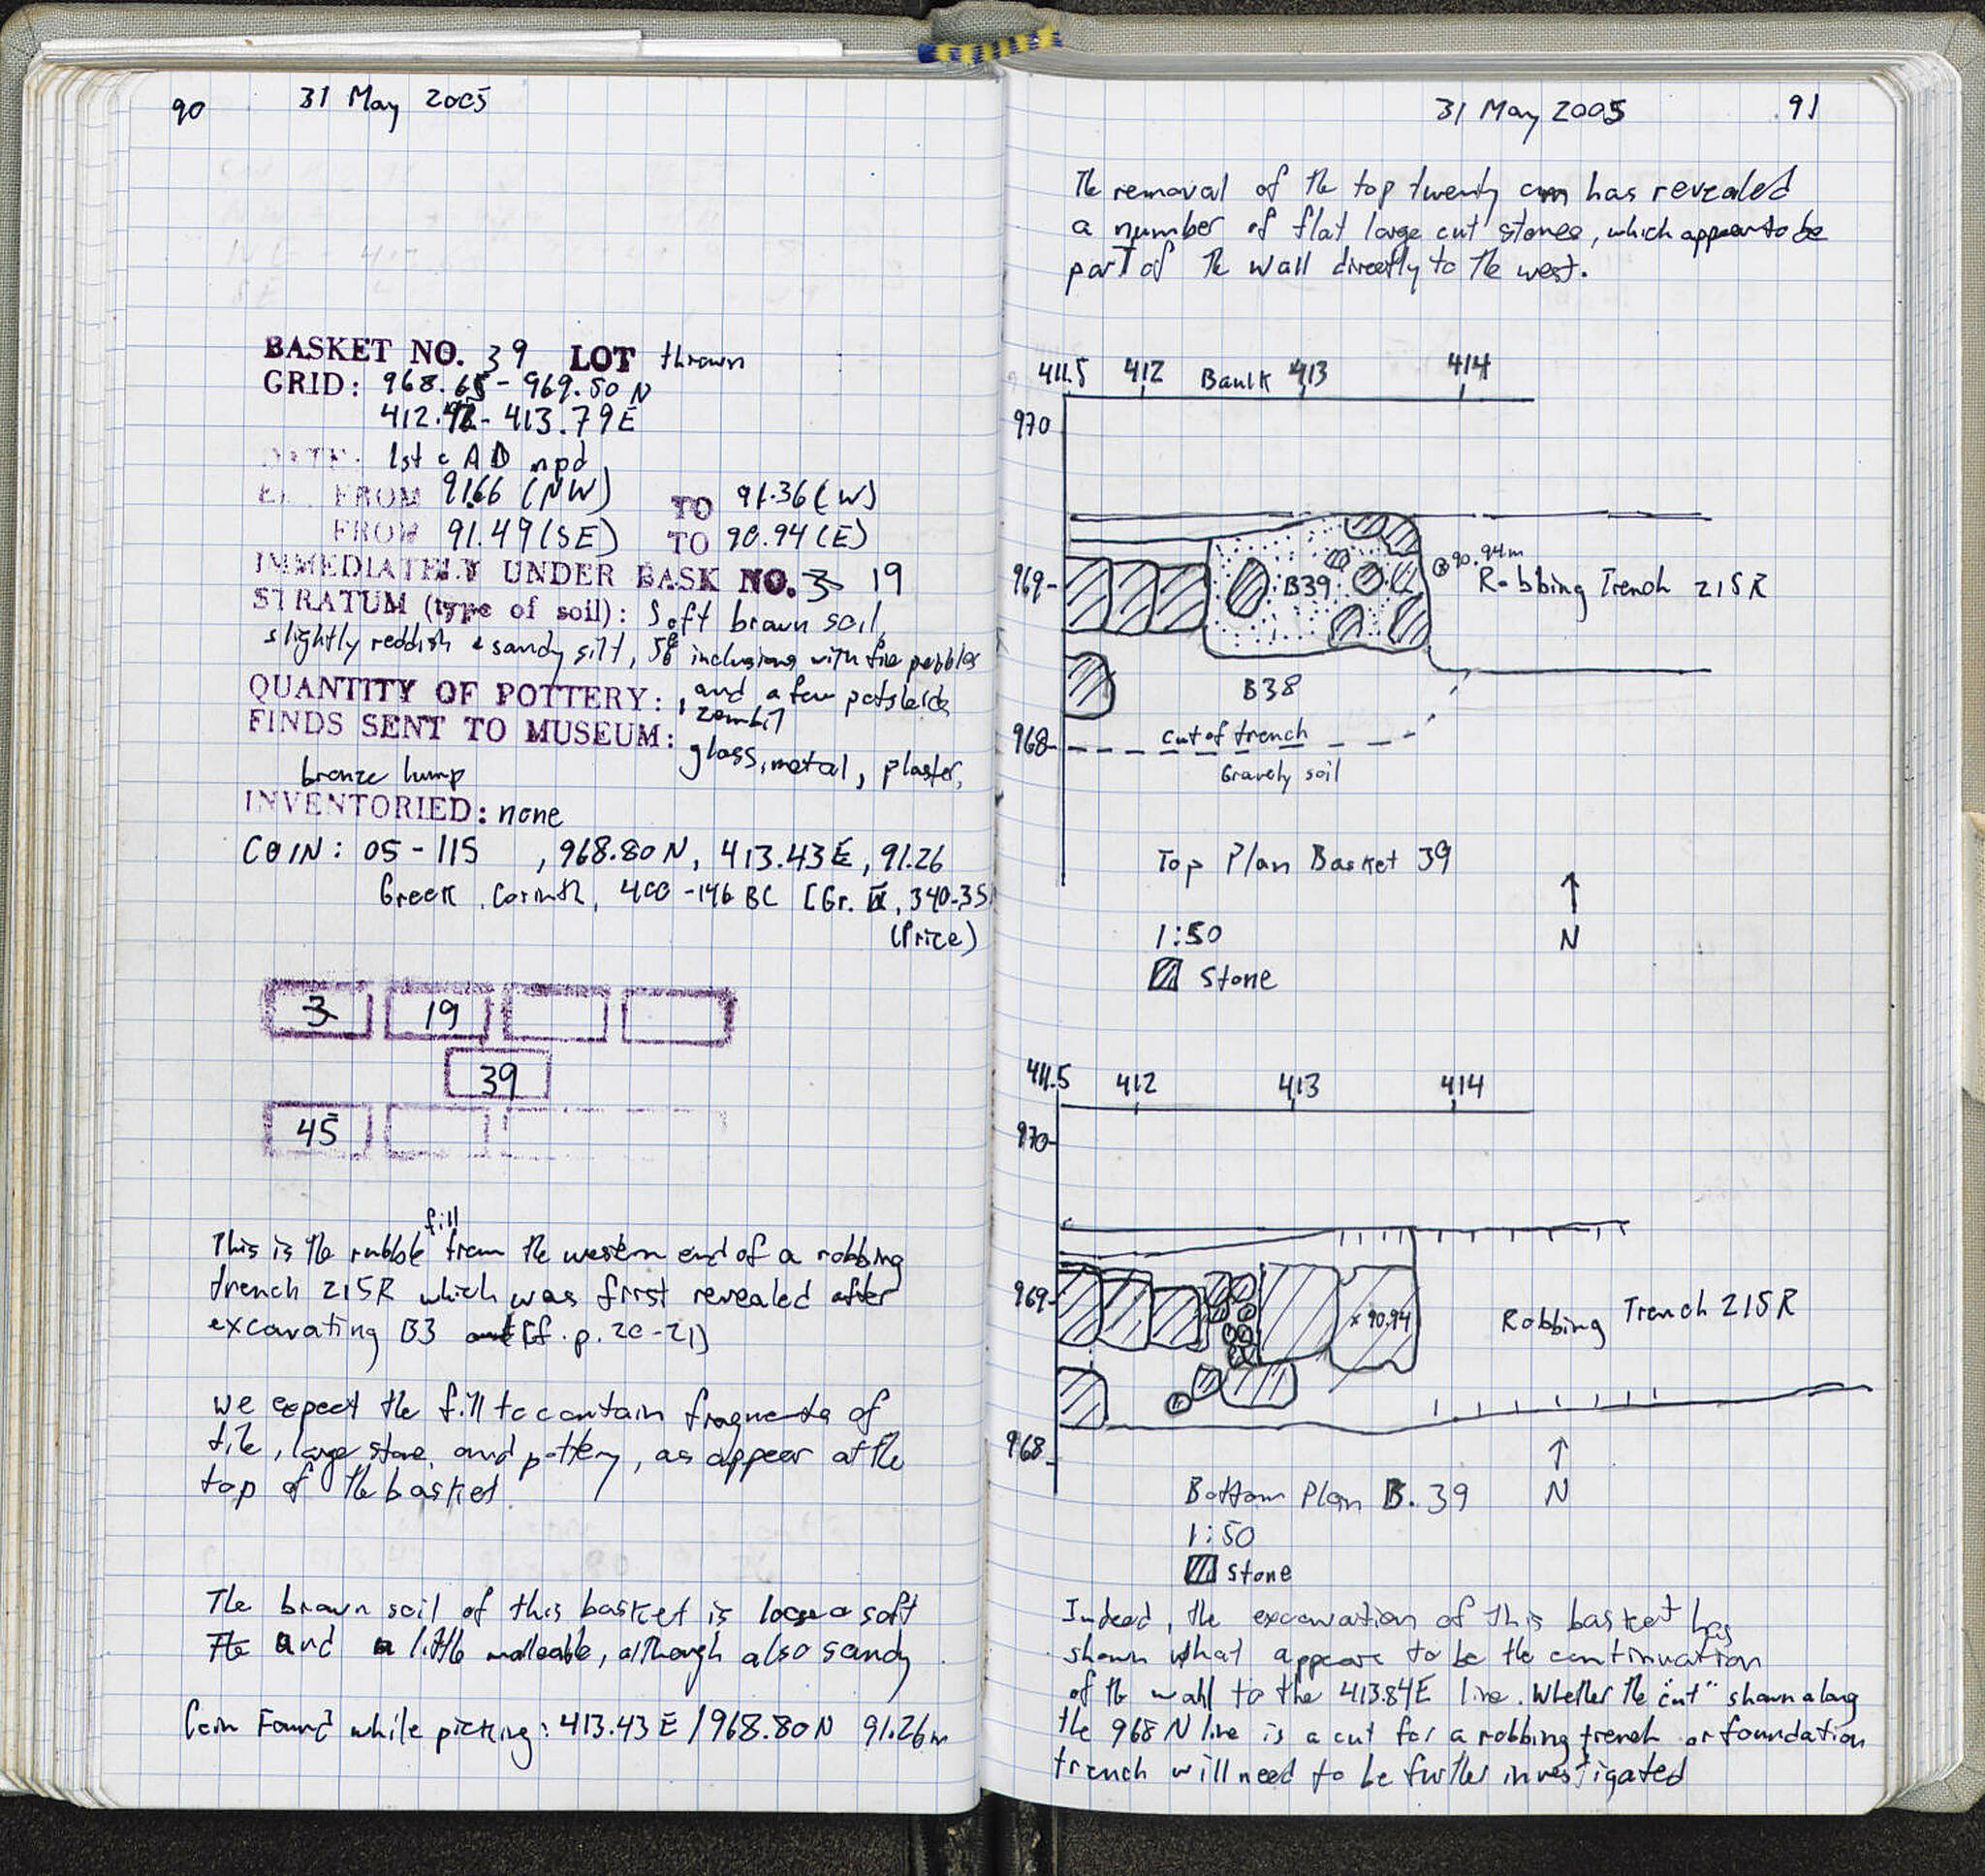 90 31 May 2005
BASKET NO. 39 LOT thrown
GRID: 968.65-969.50 N
412.42-413.79 E
DATE: 1st c AD npd
EL. FROM 91.66 (NW) TO 91.36 (W)
FROM 91.49 (SE) TO 90.94 (E)
IMMEDIATELY UNDER BASK NO. 3 19
STRATUM (type of soil): Soft brown soil,
slightly reddish sandy silt, 5% inclusions with fine pebbles
and a few potsherds
QUANTITY OF POTTERY: 1 zembil
FINDS SENT TO MUSEUM: glass, metal, plaster,
bronze lump
INVENTORIED: none
COIN: 05-115 , 968.80 N, 413.43 E, 91.26
Greek, Corinth, 400-146 BC [Gr. 340-35
(Price)
3 19
39
45
This is the rubble fill from the western end of a robbing
trench 215R which was first revealed after
excavating B3 [cf. p. 20-21)
we expect the fill to contain fragments of
tile, large stone, and pottery, as appear at the
top of the basket.
The brown soil of this basket is loose soft
The and a little malleable, although also sandy
Coin Found while picking: 413.43 E / 968.80 N 91.26m
31 May 2005 91
The removal of the top twenty cm has revealed
a number of flat large cut stones, which appear to be
part of the wall directly to the west.
411.5 412 Baulk 413 414
970
90.94m
969 B39 Robbing Trench 215R
B38
968 cut of trench
Gravely soil
Top Plan Basket 39
1:50 N
Stone
411.5 412 413 414
970
969 x 90.94 Robbing Trench 215R
968
Bottom Plan B. 39 N
1:50
Stone
Indeed, the excavation of this basket has
shown what appears to be the continuation
of the wall to the 413.84E line. Whether the "cut" shown along
the 968 N line is a cut for a robbing trench or foundation
trench will need to be further investigated